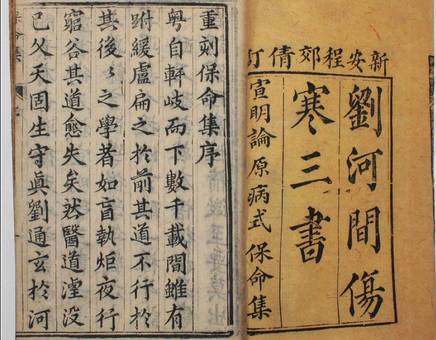 新安程郊倩訂
劉河間傷
寒三書
宣明論原病式 保命集
重刻保命集序
粤自軒岐而下數千載間雖有
跗緩盧扁之於前其道不行於
其後後之學者如盲執炬夜行
窮谷其道愈失矣然醫道湮没
已久天固生守眞劉通玄於河
保命集